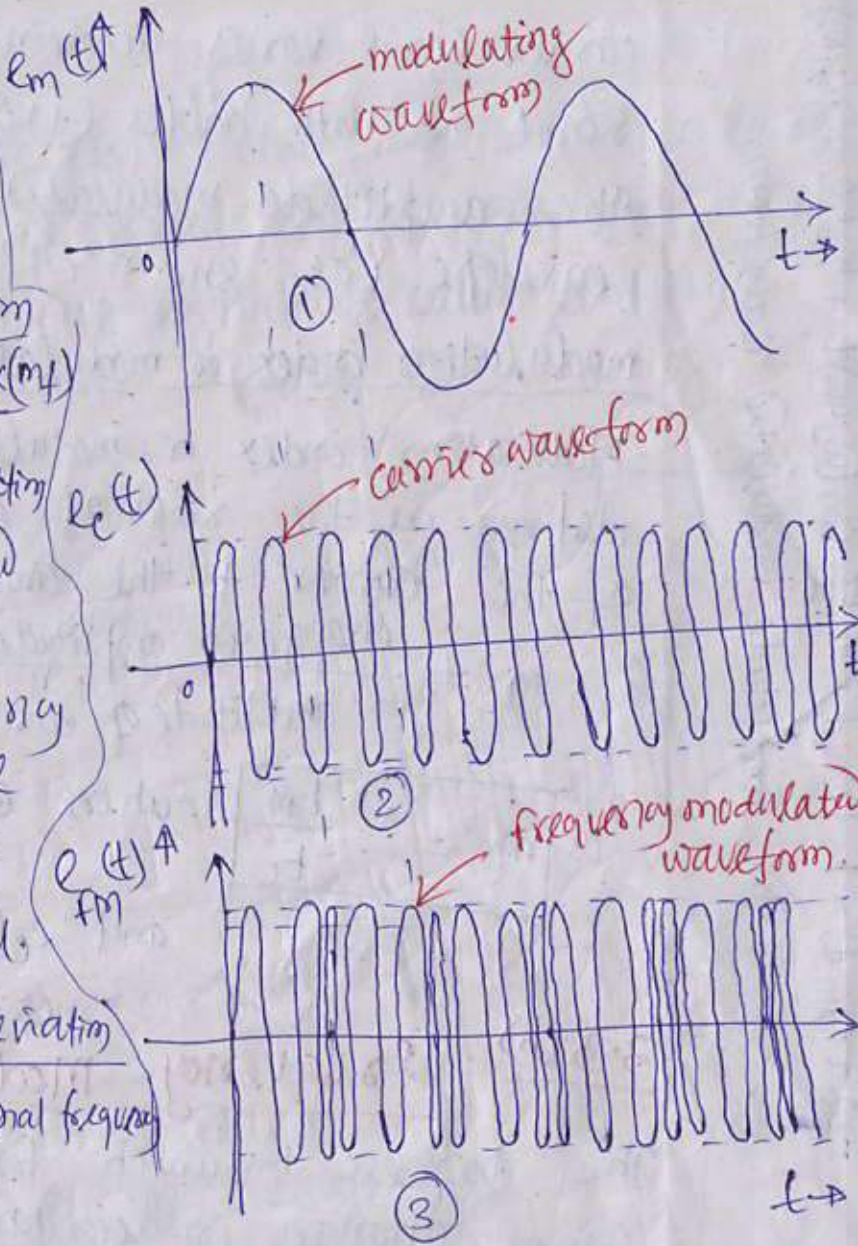 em(t)
modulating
waveform
0
t→
①
m
(mf)
carrier waveform
ec(t)
0
t
②
frequency modulated
waveform
eFM(t)
eviation
nal frequency
③
t→